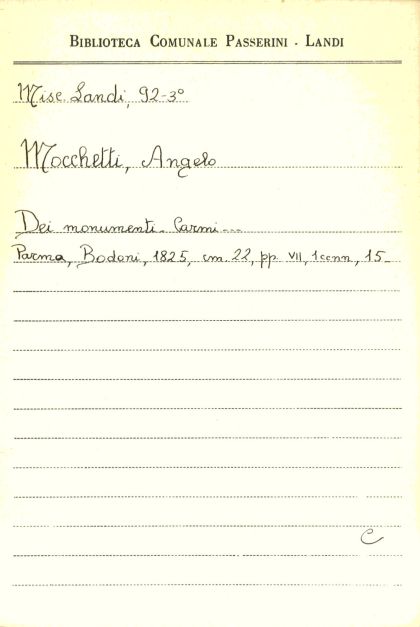 BIBLIOTECA COMUNALE PASSERINI - LANDI
Misc. Landi, 92-3°
Mocchetti, Angelo
Dei monumenti. Carmi---
Parma, Bodoni, 1825, cm. 22, pp. VII, 1cnn, 15_
C